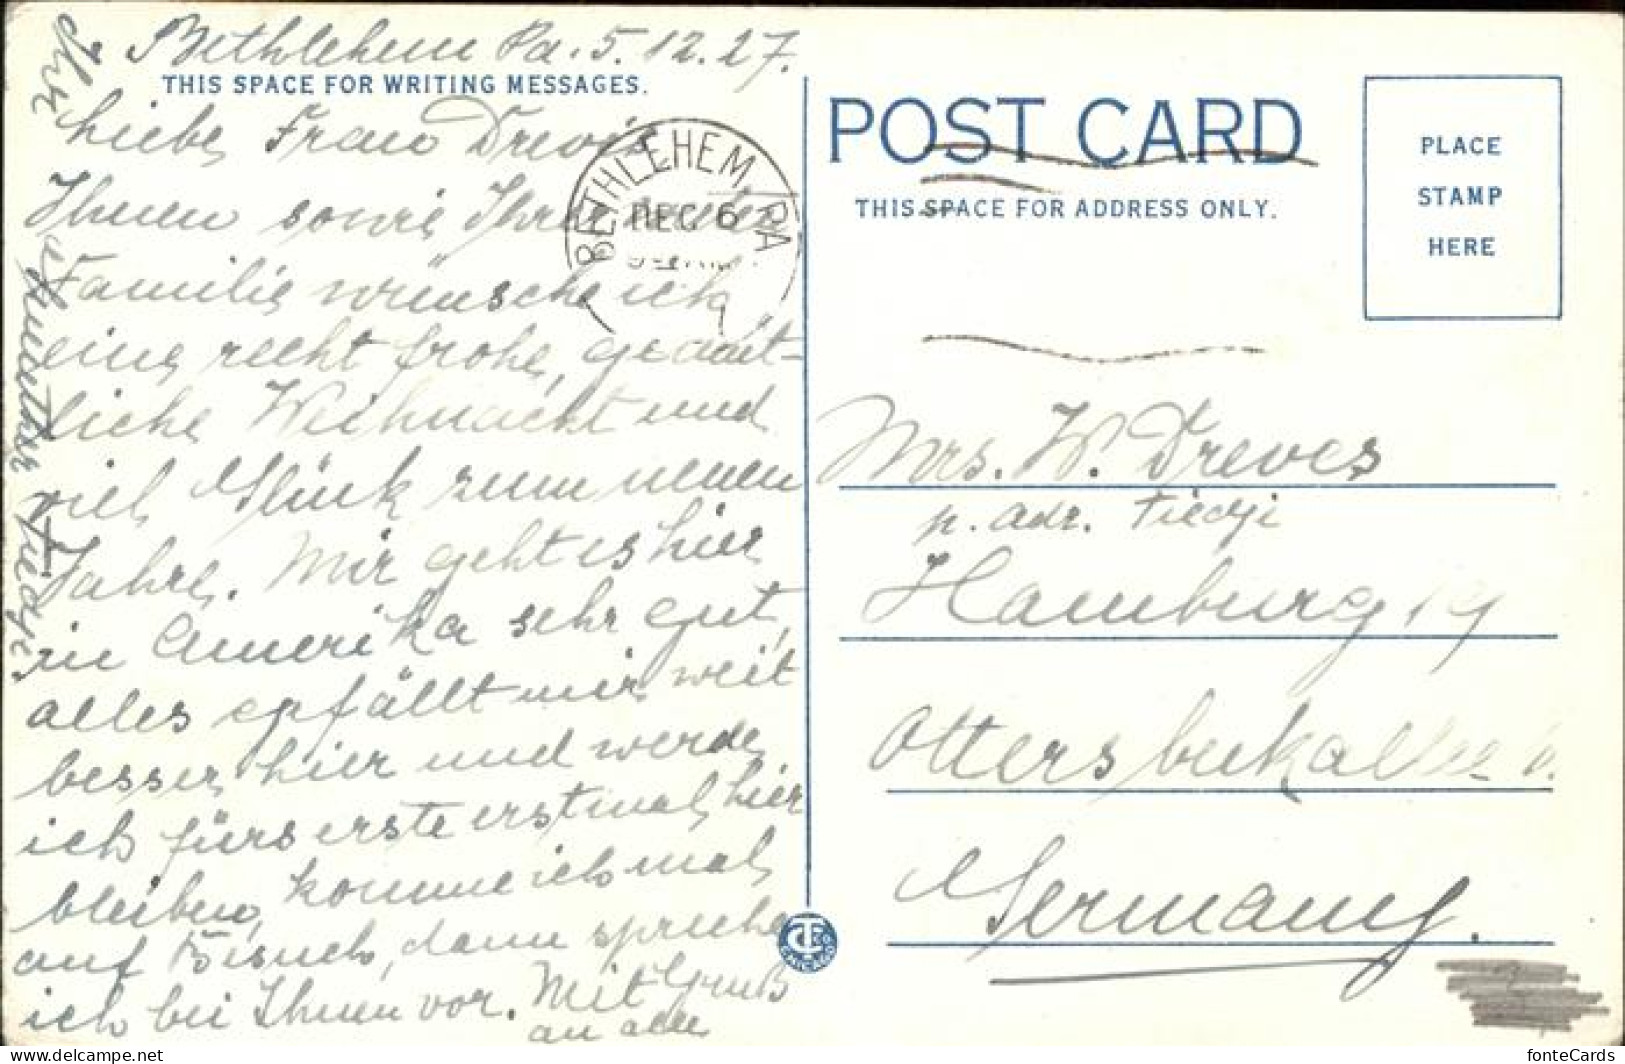 Bethlehem Pa. 5.12.27.
THIS SPACE FOR WRITING MESSAGES.
Liebe Frau Dreves
Ihnen sowie Ihrer werten
Familie wünsche ich
eine recht frohe, gemüt-
liche Weihnacht und
viel Glück zum neuen
Jahre. Mir geht es hier
in Amerika sehr gut,
alles gefällt mir weit
besser hier und werde
ich fürs erste erstmal hier
bleiben, komme ich mal
auf Besuch, dann spreche
ich bei Ihnen vor. Mit Gruß
an alle
Ihr
Tiedje
BETHLEHEM PA
DEC 6
POST CARD
THIS SPACE FOR ADDRESS ONLY.
PLACE
STAMP
HERE
Mrs. W. Dreves
p. adr. Tiedje
Hamburg 19
Germany.
CT CO
CHICAGO
fonteCards